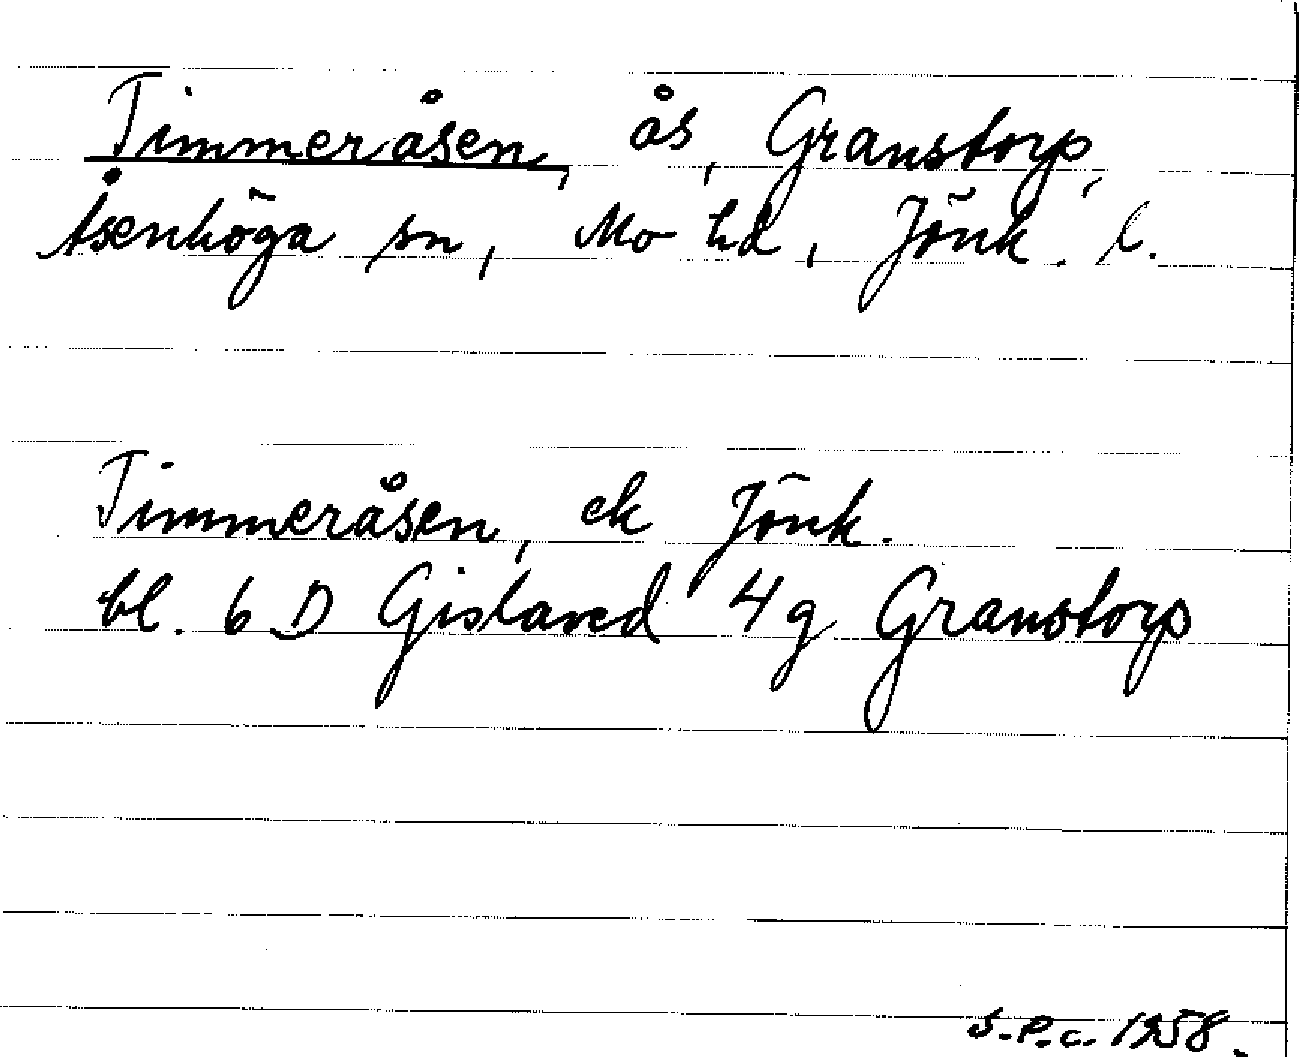 Timmeråsen, ås, Granstorp,
Åsenhöga sn, Mo hd, Jönk. l.
Timmeråsen, ek Jönk.
bl. 6 D Gislaved 4g Granstorp
S.P.C. 1958.